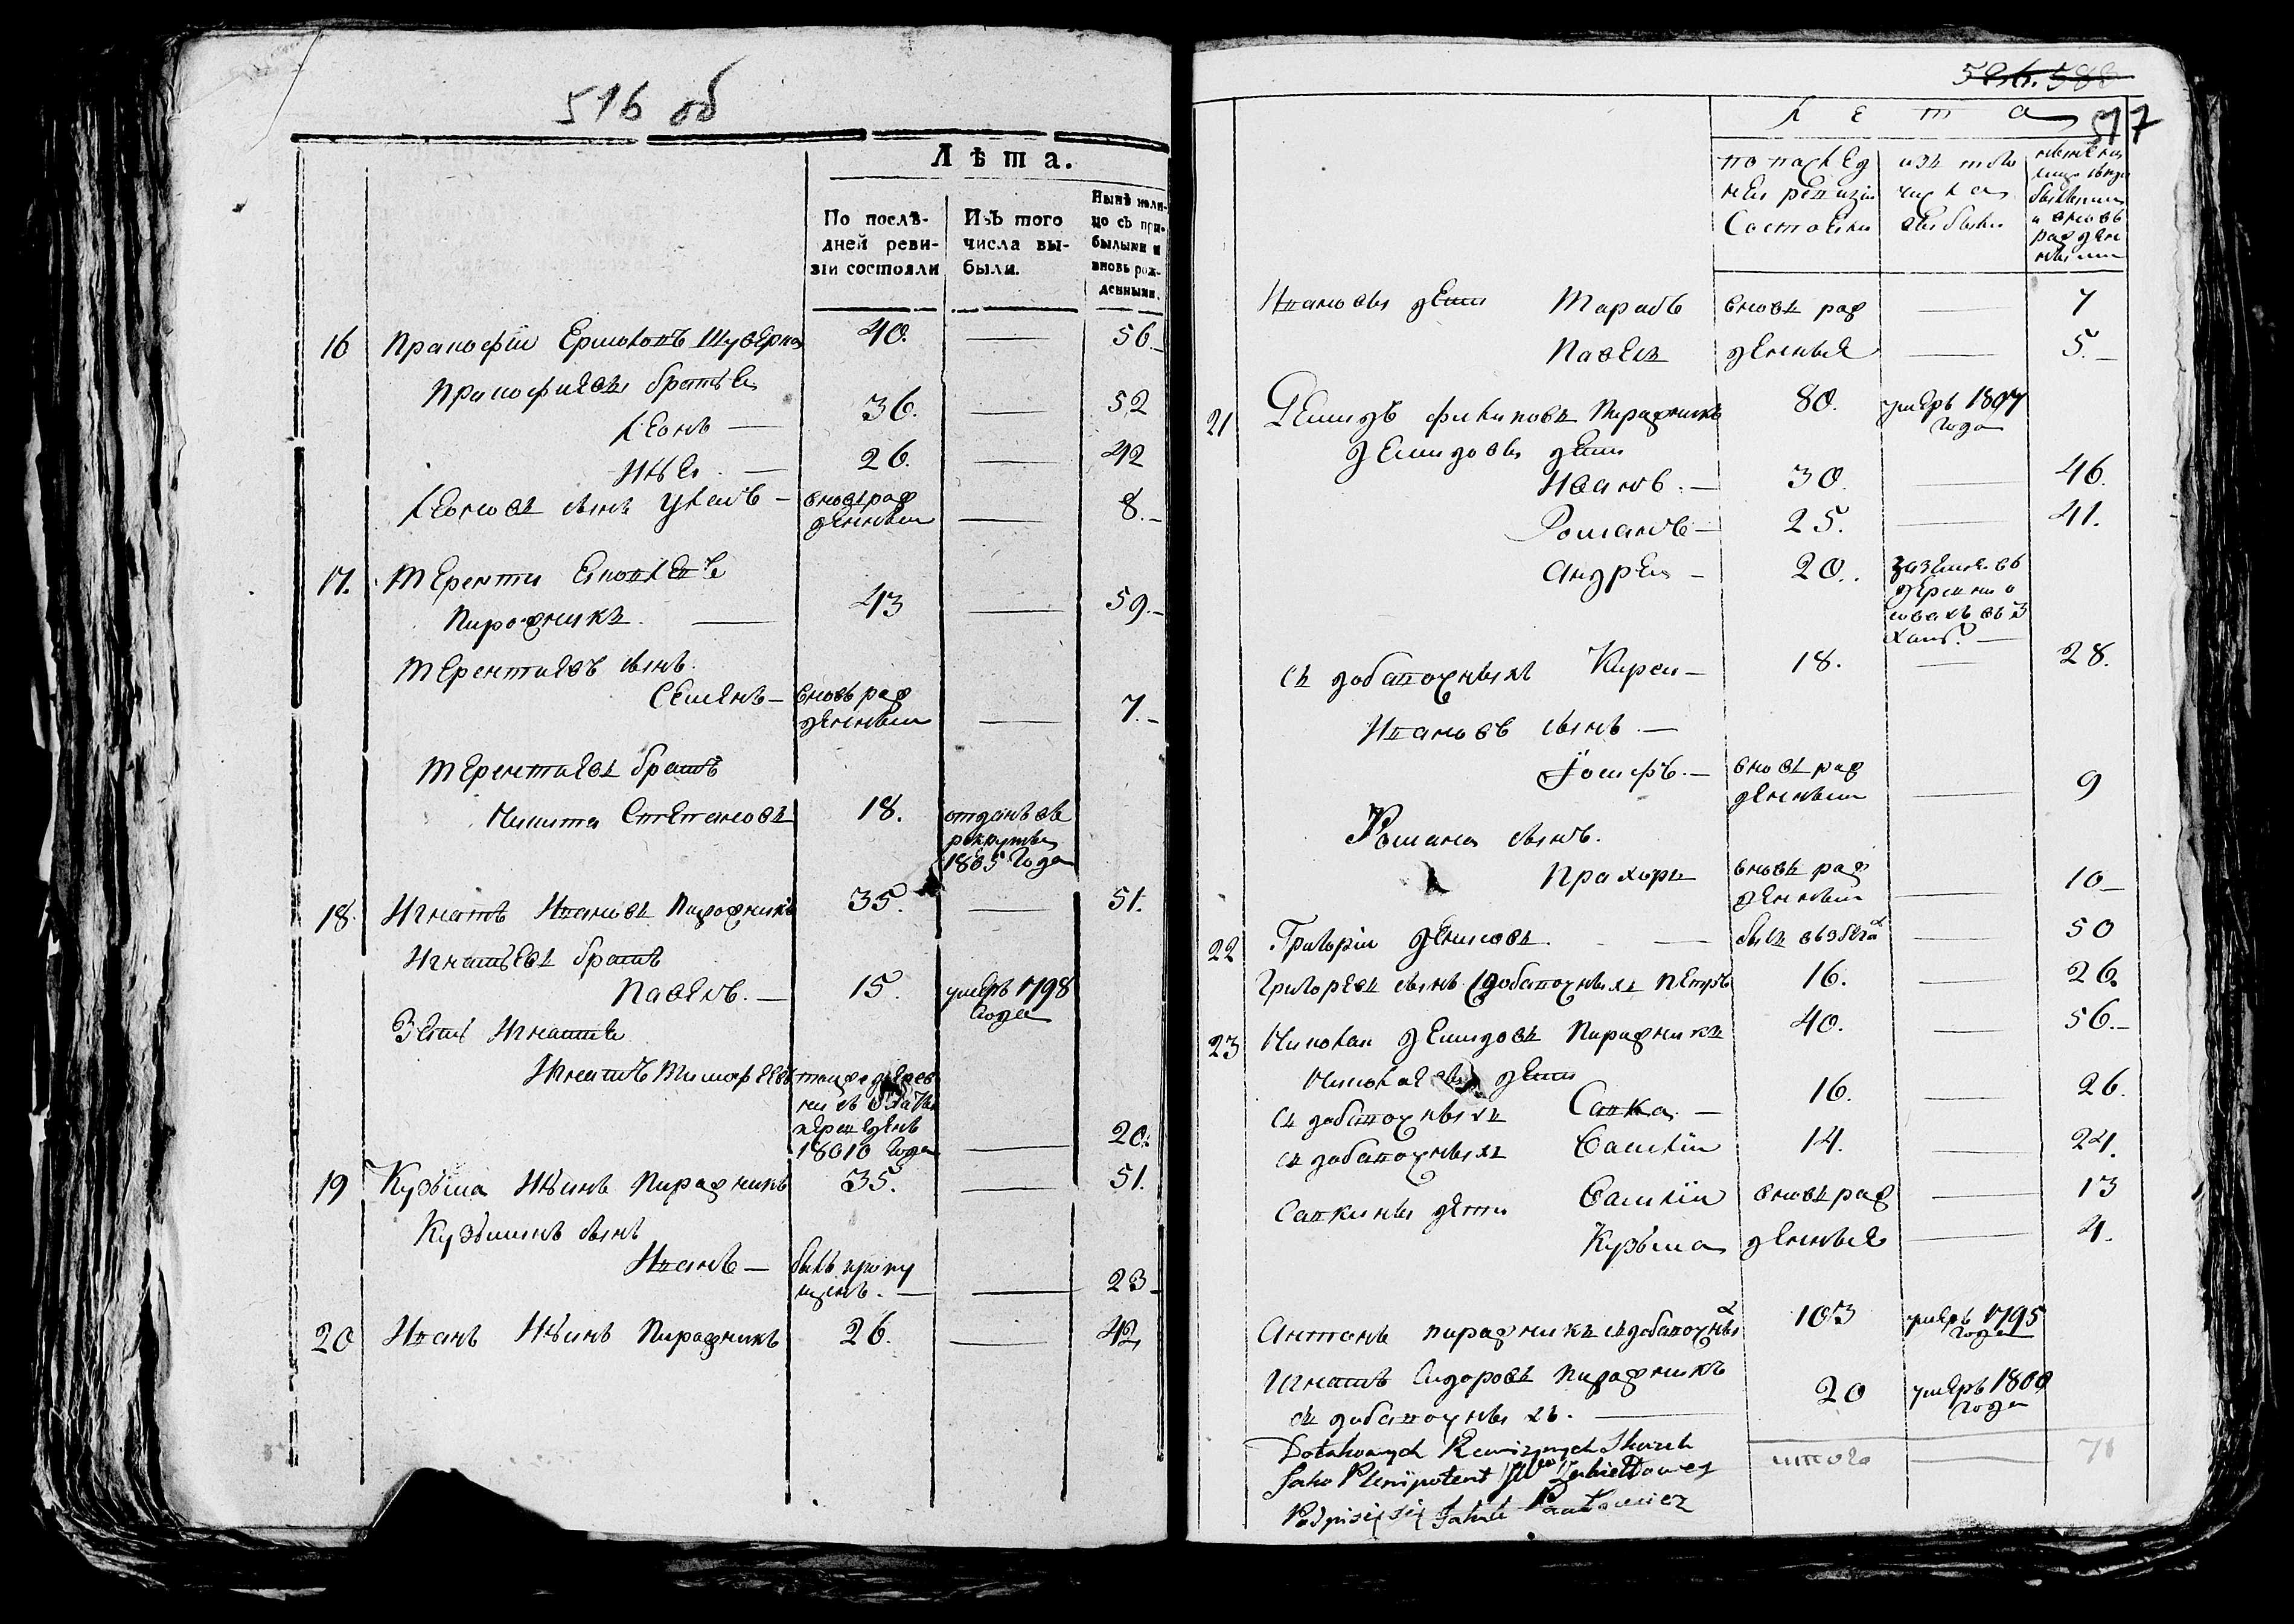 516 об
Лѣта.
По послѣ-
дней реви-
зіи состояли
Изъ того
числа вы-
были.
Нынѣ нали-
цо съ при-
былыми и
вновь рож-
денными.
16 Пракофіи Ермоловъ Шуверка 40. — 56.
Пракофиевы братья
Леонъ — 36. — 52
Илья — 26. — 42
Леоновъ сынъ Уласъ — вновь рож
денныи — 8.
17. Терентии
Пирожникъ. — 43 — 59.
Терентиевъ сынъ
Семенъ — вновь рож
денныи — 7.
Терентиевъ братъ
Никита Степановъ 18. отданъ въ
рекруты
1805 года
18. Игнатъ Ивановъ Пирожникъ 35. — 51.
Игнатьевъ братъ
Павелъ. — 15. умеръ 1798
года
Зять Игнатья
Игнатъ Тимофеевъ
переведенъ
18010 года — 20.
19 Кузьма Ильинъ Пирожникъ 35. — 51.
Кузьминъ сынъ
Иванъ — былъ пропу
щенъ. — — 23
20 Иванъ Ильинъ Пирожникъ 26. — 42
517
Лета
по послед
ней ревизіи
состояли
изъ того
числа
выбыли
и вновь
рожден
ными
Ивановы дети Тарасъ вновь рож — 7
Павелъ денные — 5.
21 Демидъ Филиповъ Пирожникъ 80. умеръ 1807
года
Демидовы дети
Иванъ. — 30. — 46.
Романъ — 25. — 41.
Андреи — 20.
съ добавочныхъ Киреи — 18. — 28.
Ивановъ сынъ. —
Іосифъ. — вновь рож
денныи — 9
Романа сынъ.
Прахоръ вновь рож
денныи — 10
22 Григоріи Денисовъ. — былъ въ бега х — 50
Григорьевъ сынъ съ добавочныхъ Петръ 16. — 26.
23 Николаи Демидовъ Пирожникъ 40. — 56.
Николаевы дети
съ добавочныхъ Савка. — 16. — 26.
съ добавочныхъ Василіи 14. — 24.
Савкины дети Василіи вновь рож — 13
Кузьма денные — 4.
Антонъ пирожникъ съ добавочны х 103 умеръ 1795
года
Игнатъ Сидоровъ Пирожникъ
съ добавочныхъ. — 20 умеръ 1800
года
итого — 71
Jako Plenipotent
Podpisuię się